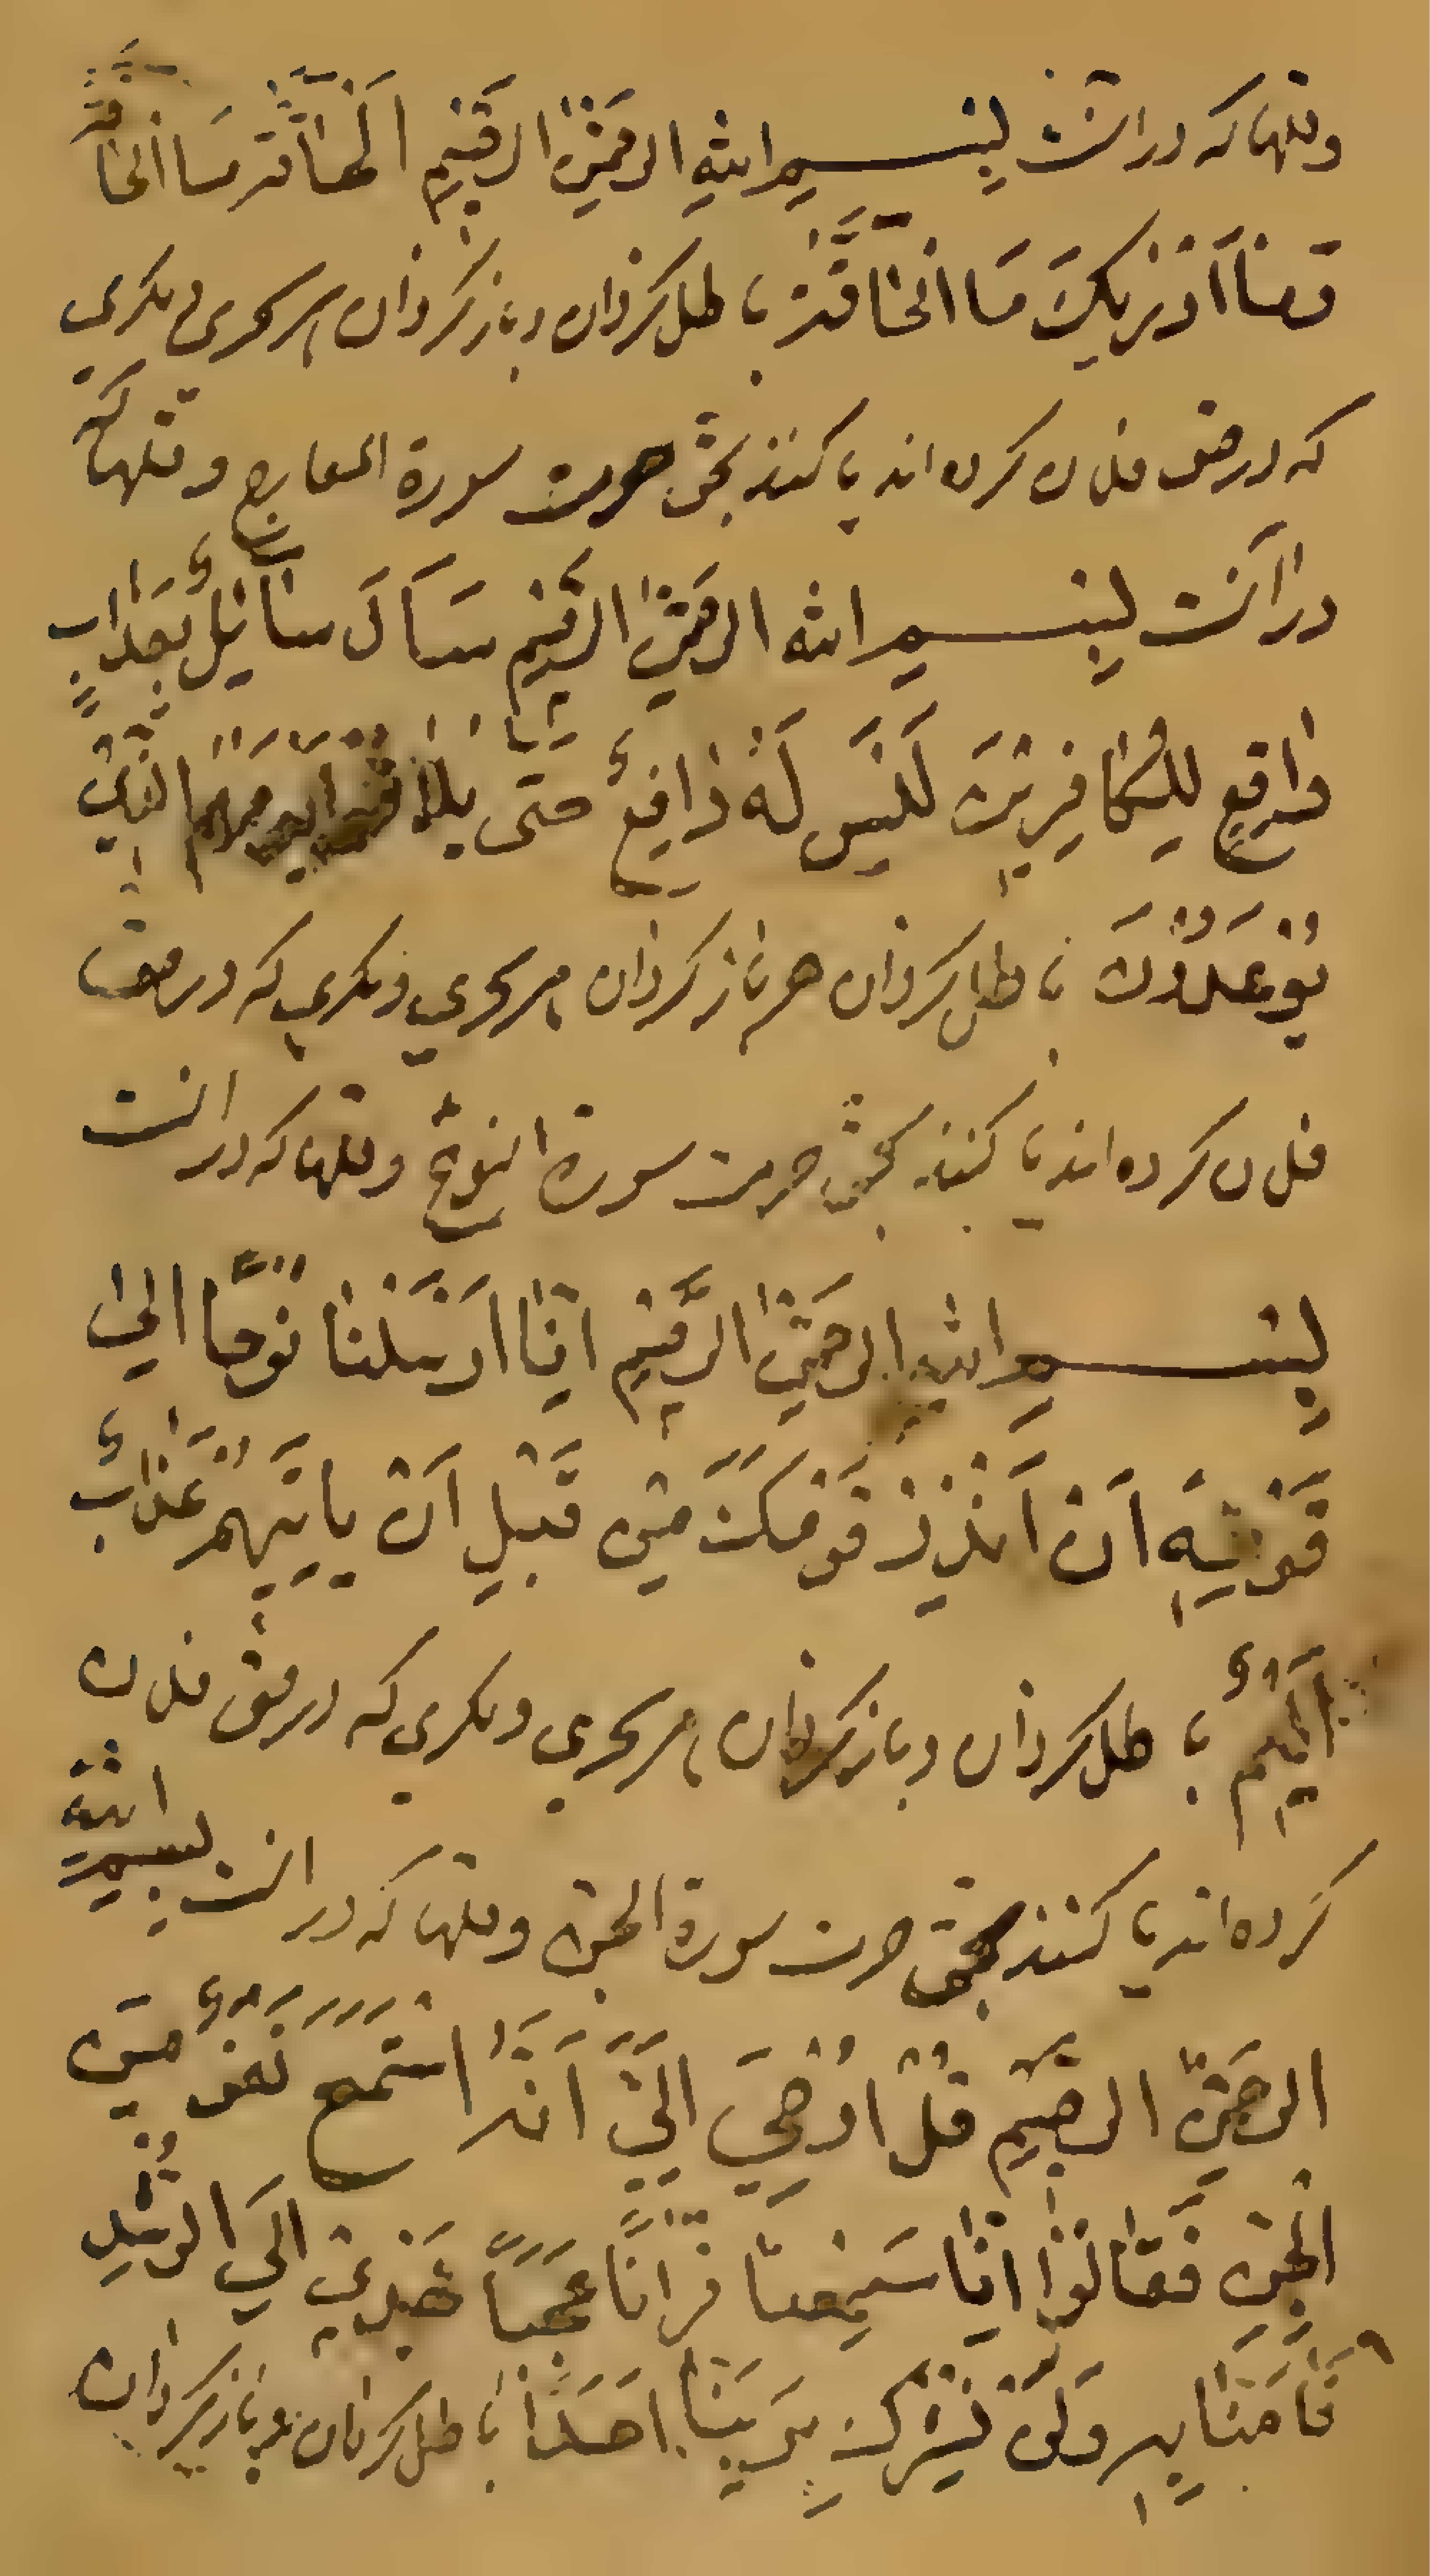 وقلها که در انست بِسْمِ اللهِ الرَّحْمٰنِ الرَّحِيمِ الْحَاقَّةُ مَا الْحَاقَّةُ
وَمَا اَدْرٰیكَ مَا الْحَاقَّةُ باطل کردان و باز کردان هر سحری و مکری
که در حق فلان کرده اند یا کنند بحق حرمت سورة المعارج وقلها که
در انست بِسْمِ الله الرَّحْمٰنِ الرَّحِيمِ سَاَلَ سَآئِلٌ بِعَذَابٍ
وَاقِعٍ لِلْكَافِرِيْنَ لَيْسَ لَهُ دَافِعٌ حَتّٰى يُلَاقُوا يَوْمَهُمُ الَّذِي
يُوْعَدُوْنَ باطل کردان هر باز کردان هر سحری و مکری که در حق
فلان کرده اند یا کنند بحق حرمت سورة النوح وقلها که در انست
بِسْمِ اللهِ الرَّحْمٰنِ الرَّحِيْمِ اِنَّا اَرْسَلْنَا نُوْحًا اِلٰى
قَوْمِهٖ اَنْ اَنْذِرْ قَوْمَكَ مِنْ قَبْلِ اَنْ يَاتِيَهُمْ عَذَابٌ
اَلِيْمٌ باطل کردان و باز کردان هر سحری و مکری که در حق فلان
کرده اند یا کنند بحق حرمت سورة الجن وقلها که در انست بسم اللهِ
الرَّحْمٰنِ الرَّحِيْمِ قُلْ اُوْحِيَ اِلَيَّ اَنَّهُ اسْتَمَعَ نَفَرٌ مِنَ
الْجِنِّ فَقَالُوْا اِنَّا سَمِعْنَا قُرْاٰنًا عَجَبًا يَهْدِيْ اِلَى الرُّشْدِ
فَاٰمَنَّا بِهٖ وَلَنْ نُشْرِكَ بِرَبِّنَا اَحَدًا باطل کردان و باز کردان